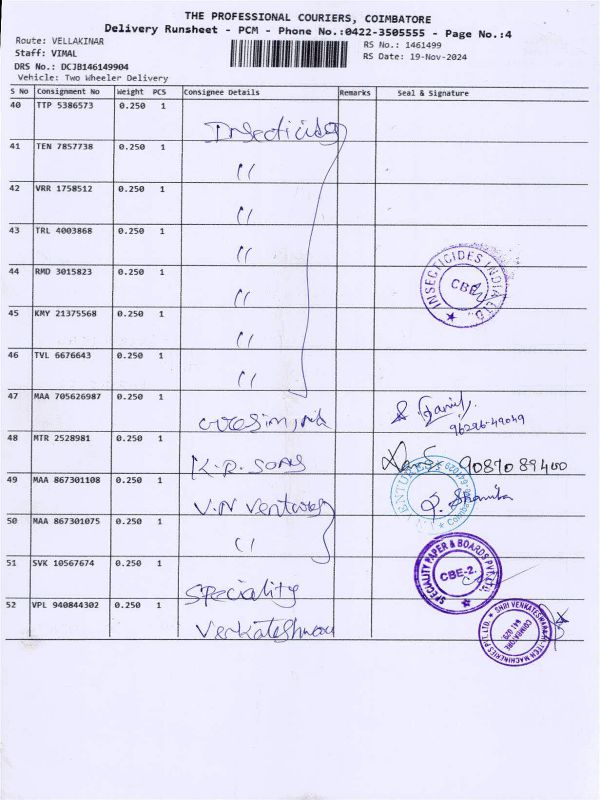 THE PROFESSIONAL COURIERS, COIMBATORE
Delivery Runsheet - PCM - Phone No.:0422-3505555 - Page No.:4
Route: VELLAKINAR
RS No.: 1461499
Staff: VIMAL
RS Date: 19-Nov-2024
DRS No.: DCJB146149904
Vehicle: Two Wheeler Delivery
S No Consignment No Weight PCS Consignee Details Remarks Seal & Signature
40 TTP 5386573 0.250 1 Insecticides
41 TEN 7857738 0.250 1 ״
42 VRR 1758512 0.250 1 ״
43 TRL 4003868 0.250 1 ״
44 RMD 3015823 0.250 1 ״
INSECTICIDES INDIA LTD. CBE
45 KMY 21375568 0.250 1 ״
46 TVL 6676643 0.250 1 ״
47 MAA 705626987 0.250 1
S. Daniel
96296-49049
48 MTR 2528981 0.250 1 K.R. sons 9087089400
49 MAA 867301108 0.250 1 V.N Ventures
VENTURES Coimbatore
50 MAA 867301075 0.250 1 ״
51 SVK 10567674 0.250 1 Speciality
SPECIALITY PAPER & BOARDS PVT. LTD. CBE-2.
52 VPL 940844302 0.250 1 Venkateshwara
SHRI VENKATESHWARA HI-TECH MACHINERIES PVT. LTD. COIMBATORE 641 029